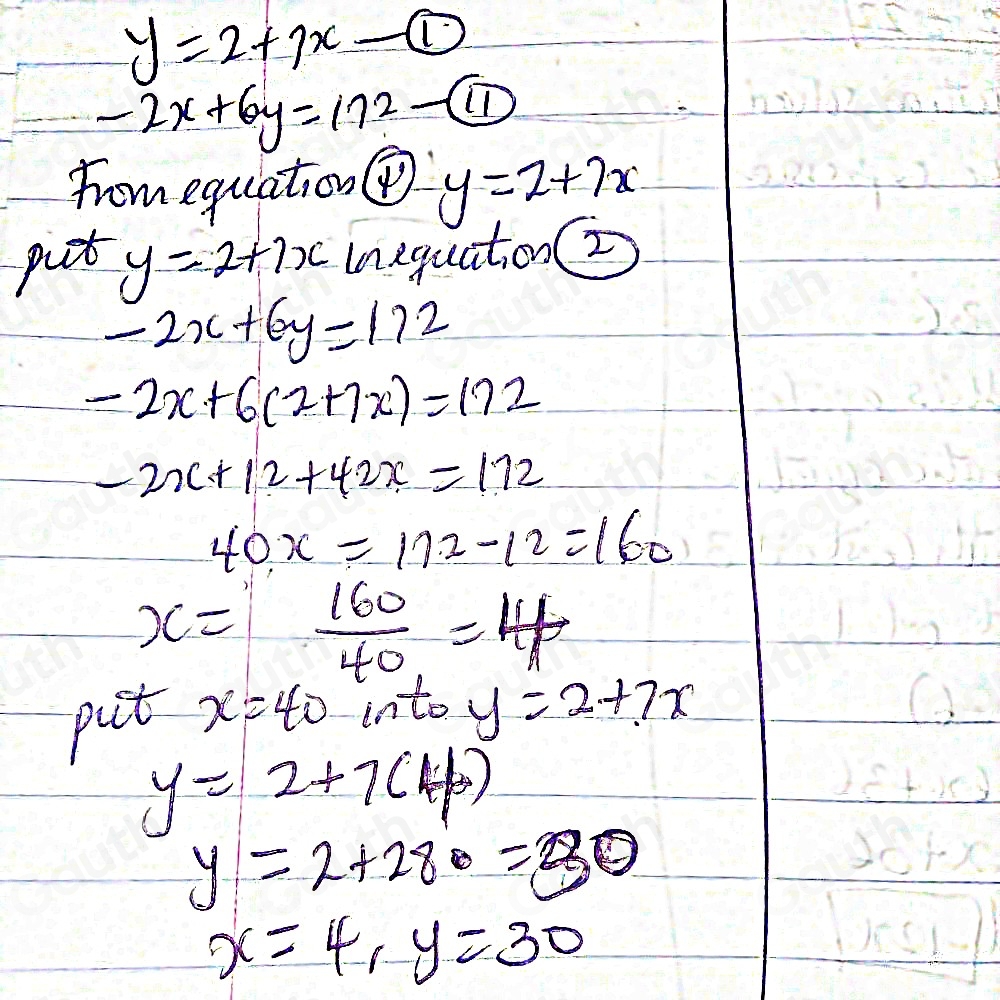 y = 2 + 7x — ①
-2x + 6y = 172 — ⑪
From equation ① y = 2 + 7x
put y = 2 + 7x in equation ②
-2x + 6y = 172
-2x + 6(2 + 7x) = 172
-2x + 12 + 42x = 172
40x = 172 - 12 = 160
x = 160/40 = 4
put x = 40 into y = 2 + 7x
y = 2 + 7(4)
y = 2 + 280 = 30
x = 4, y = 30